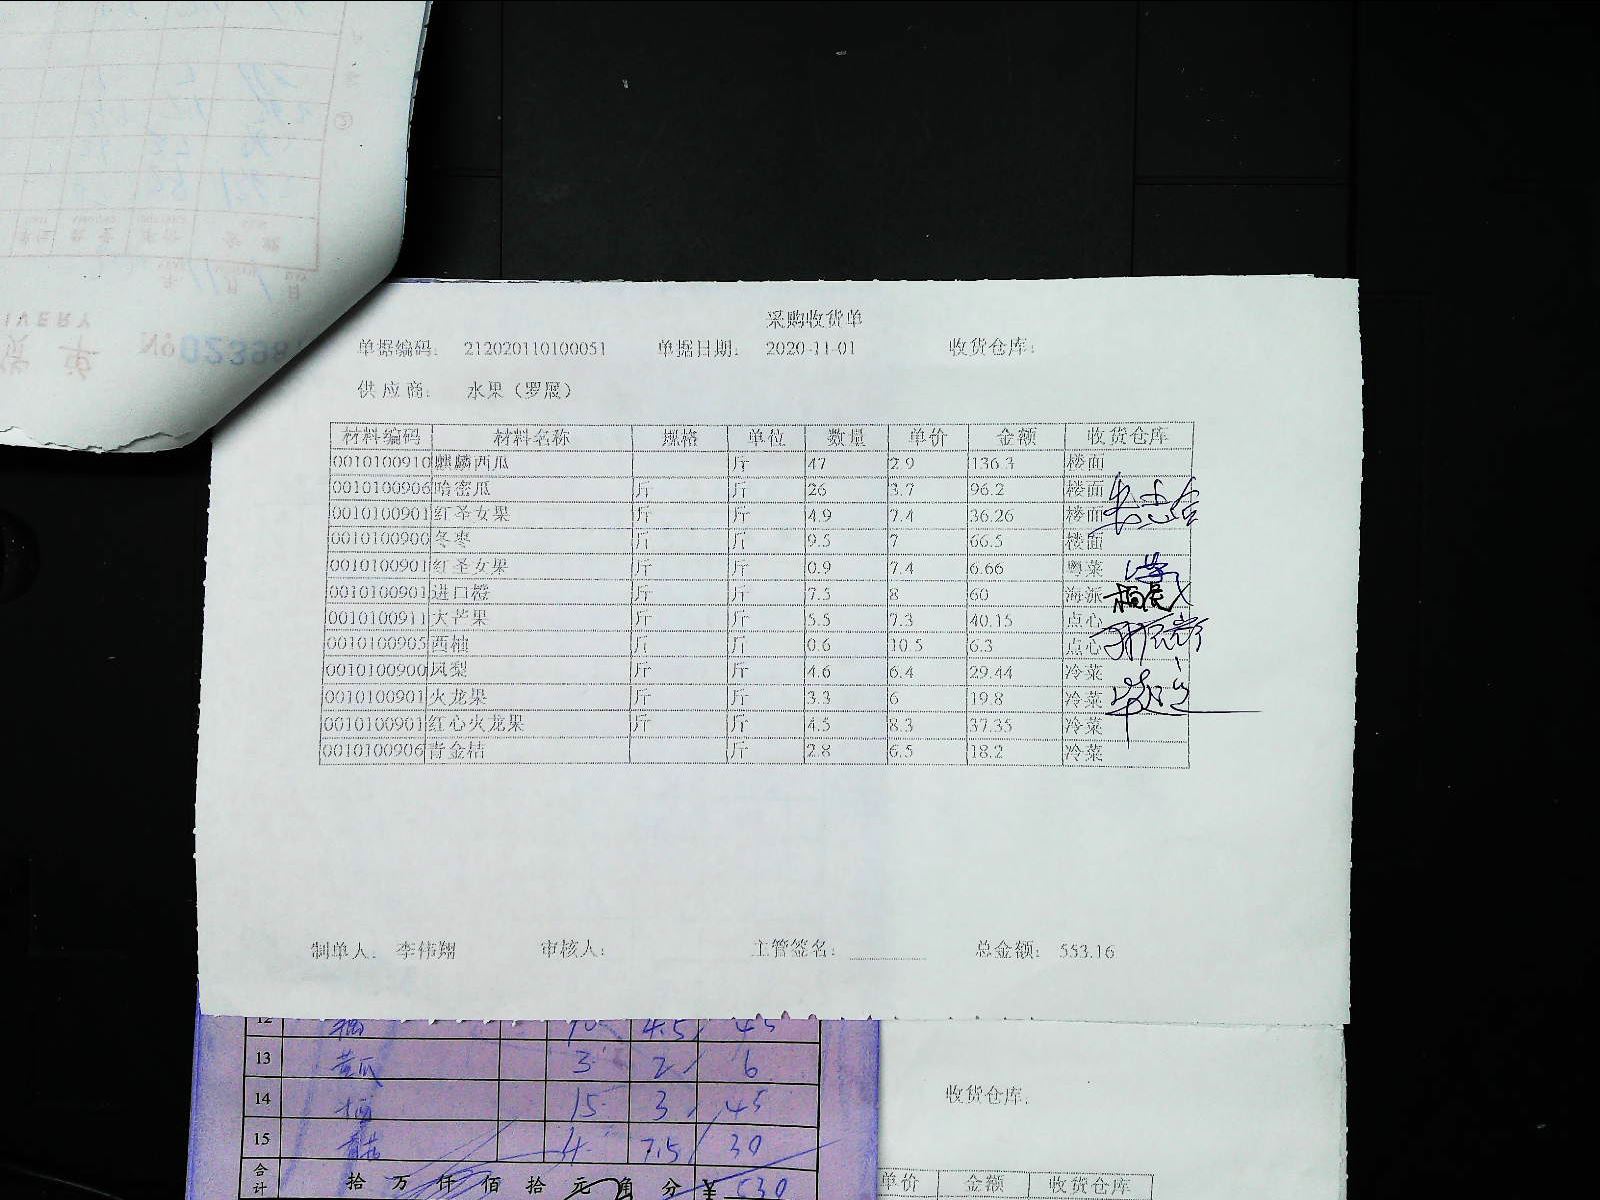 采购收货单
单据编码: 212020110100051 单据日期: 2020-11-01 收货仓库:
供应商: 水果（罗晟）
材料编码 材料名称 规格 单位 数量 单价 金额 收货仓库
0010100910 麒麟西瓜 斤 47 2.9 136.3 楼面
0010100906 哈密瓜 斤 斤 26 3.7 96.2 楼面
0010100901 红圣女果 斤 斤 4.9 7.4 36.26 楼面
0010100900 冬枣 斤 斤 9.5 7 66.5 楼面
0010100901 红圣女果 斤 斤 0.9 7.4 6.66 粤菜
0010100901 进口橙 斤 斤 7.5 8 60 海派
0010100911 大芒果 斤 斤 5.5 7.3 40.15 点心
0010100905 西柚 斤 斤 0.6 10.5 6.3 点心
0010100900 凤梨 斤 斤 4.6 6.4 29.44 冷菜
0010100901 火龙果 斤 斤 3.3 6 19.8 冷菜
0010100901 红心火龙果 斤 斤 4.5 8.3 37.35 冷菜
0010100906 青金桔 斤 2.8 6.5 18.2 冷菜
制单人: 李伟翔 审核人: 主管签名: 总金额: 553.16
12 10 4.5 45
13 黄瓜 3 2 6
14 15 3 45
15 4 7.5 30
合计 拾 万 仟 佰 拾 元 角 分 ¥ 530
收货仓库:
单价 金额 收货仓库